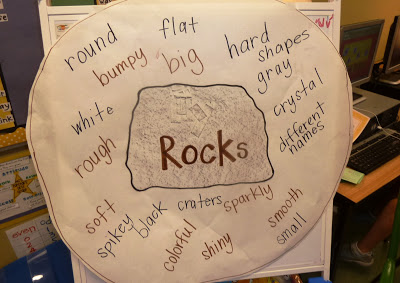 round
flat
hard
shapes
bumpy
big
gray
white
crystal
different
names
rough
Rocks
soft
spikey
black
craters
sparkly
smooth
small
colorful
shiny